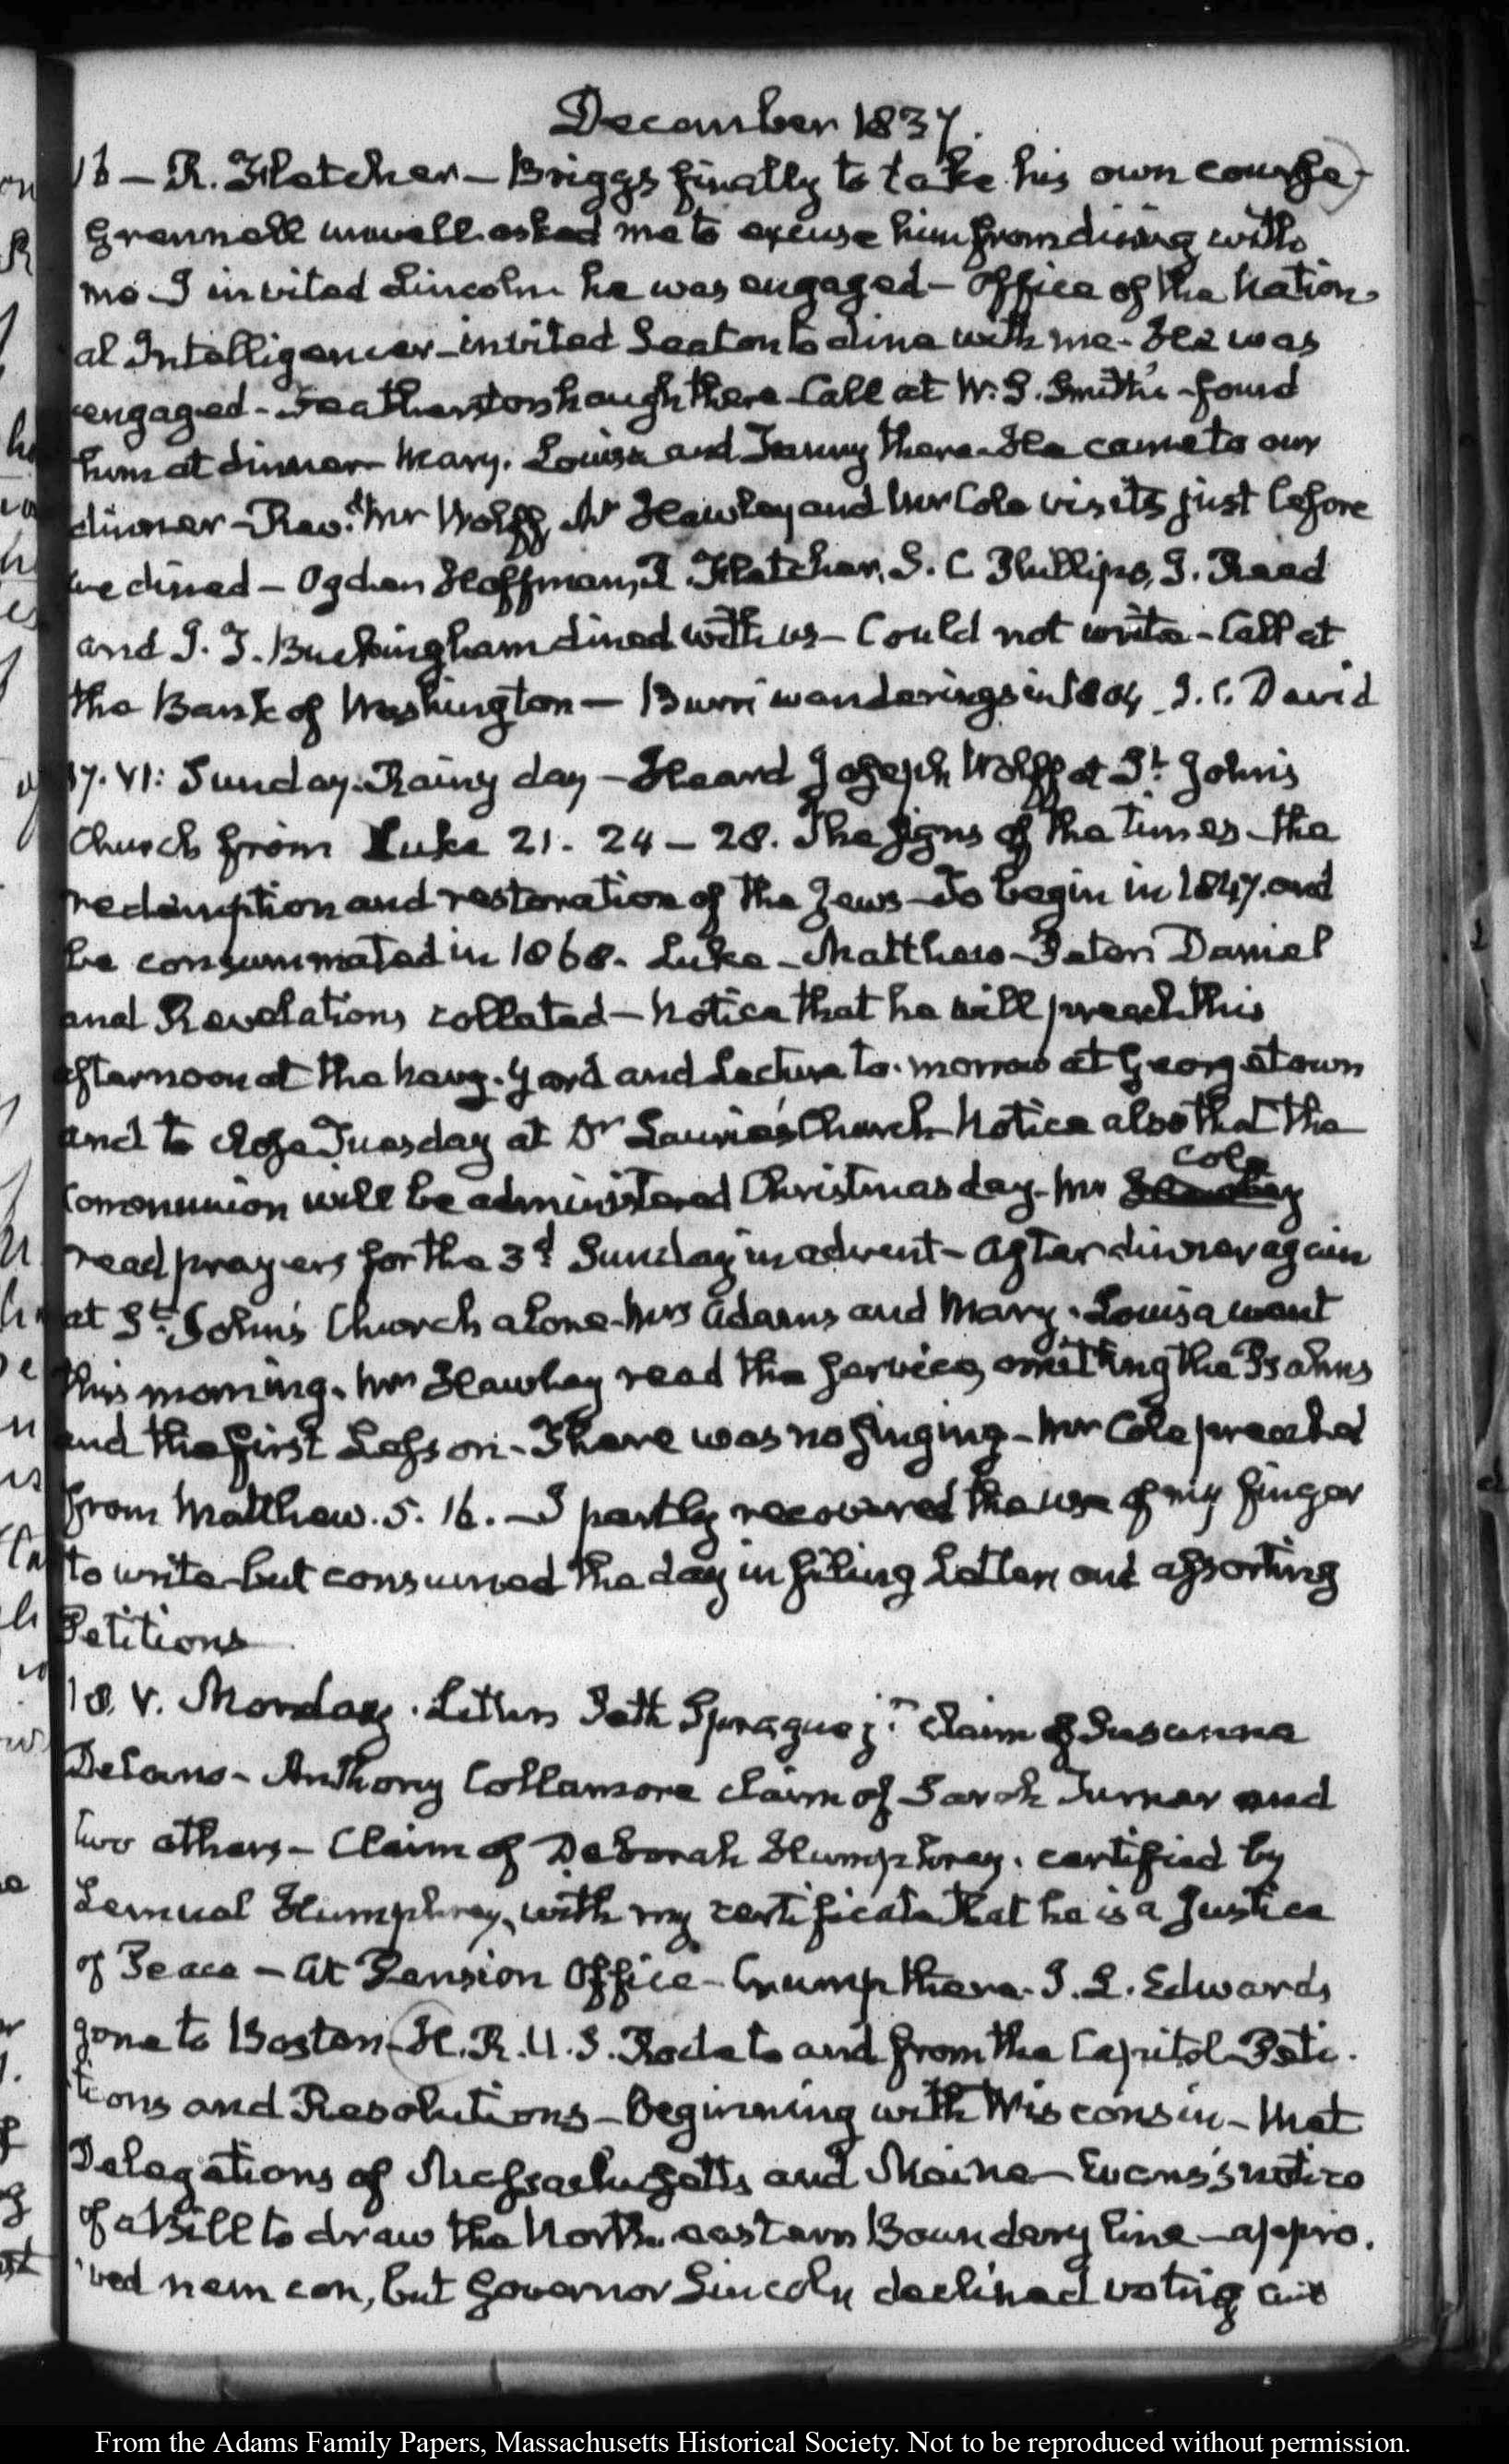 December 1837.
16 – R. Fletcher – Briggs finally to take his own course –
Grennell unwell asked me to excuse him from dining with
me – I invited Lincoln he was engaged – Office of the Nation
al Intelligencer – invited Seaton to dine with me – He was
engaged – Featherstonhaugh there – Call at W. S. Smith's – found
him at dinner – Mary. Louisa and Fanny there – He came to our
dinner – Revd. Mr Wolff, Mr Hawley and Mr Cole visits just before
we dined – Ogden Hoffman, R. Fletcher, S. C. Phillips, J. Reed
and J. T. Buckingham dined with us – Could not write – Call at
the Bank of Washington – Burr's wanderings in 1804 – I. C. David
17. VI: Sunday. Rainy day – Heard Joseph Wolff at St. John's
Church from Luke 21. 24 – 28. The signs of the times – the
redemption and restoration of the Jews – to begin in 1847. and
be consummated in 1868. Luke – Matthew – Peter, Daniel
and Revelations collated – Notice that he will preach this
afternoon at the Navy. Yard and Lecture to-morrow at Georgetown
and to close Tuesday at Dr Laurie's Church – Notice also that the
Cole
Communion will be administered Christmas day – Mr Hawley
read prayers for the 3d. Sunday in advent – After dinner again
at St. John's Church alone – Mrs Adams and Mary. Louisa went
this morning. Mr Hawley read the service, omitting the Psalms
and the first Lesson – There was no singing – Mr Cole preached
from Matthew. 5. 16. – I partly recovered the use of my finger
to write but consumed the day in filing Letters and assorting
Petitions
18. V. Monday. Letters Seth Sprague jr. Claim of Susanna
Delano – Anthony Collamore claim of Sarah Turner and
two others – Claim of Deborah Humphrey. certified by
Lemuel Humphrey, with my certificate that he is a Justice
of Peace – At Pension Office – Crump there. J. L. Edwards
gone to Boston – H. R. U. S. Rode to and from the Capitol – Peti.
tions and Resolutions – Beginning with Wisconsin – Met
Delegations of Massachusetts and Maine – Evans's notice
of a Bill to draw the North-eastern Boundary line – appro.
ved nem con, but Governor Lincoln declined voting
From the Adams Family Papers, Massachusetts Historical Society. Not to be reproduced without permission.